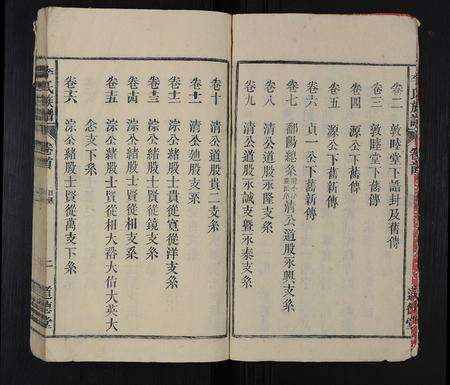 李氏族譜 卷首
道德堂
卷二 敦睦堂下誥封及舊傳
卷三 敦睦堂下舊傳
卷四 源公下舊傳
卷五 源公下舊新傳
卷六 貞一公下舊新傳
卷七 鄱陽總系 清公道股永興支系
卷八 清公道股永隆支系
卷九 清公道股永誠支暨永泰支系
卷十 清公道股貴二支系
卷十一 清公迪股支系
卷十二 淙公緒股士貴從寬從洋支系
卷十三 淙公緒股士賢從鏡支系
卷十四 淙公緒股士賢從相支系
卷十五 淙公緒股士賢從相大濬大佑大英大
忿支下系
卷十六 淙公緒股士賢從萬支下系
李氏族譜 卷首
二 道德堂